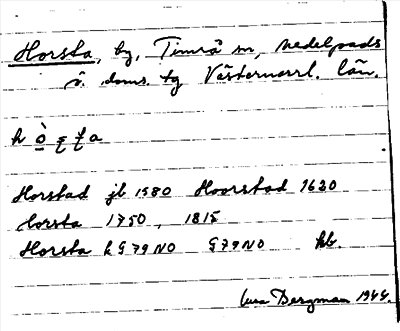 Horsta, by, Timrå sn, Medelpads
ö. doms. tg Västernorrl. län.
Horstad jb 1580 Hoorstad 1620
Horsta 1750, 1815
Horsta k G79NO G79NO kb.
Bergman 1966.